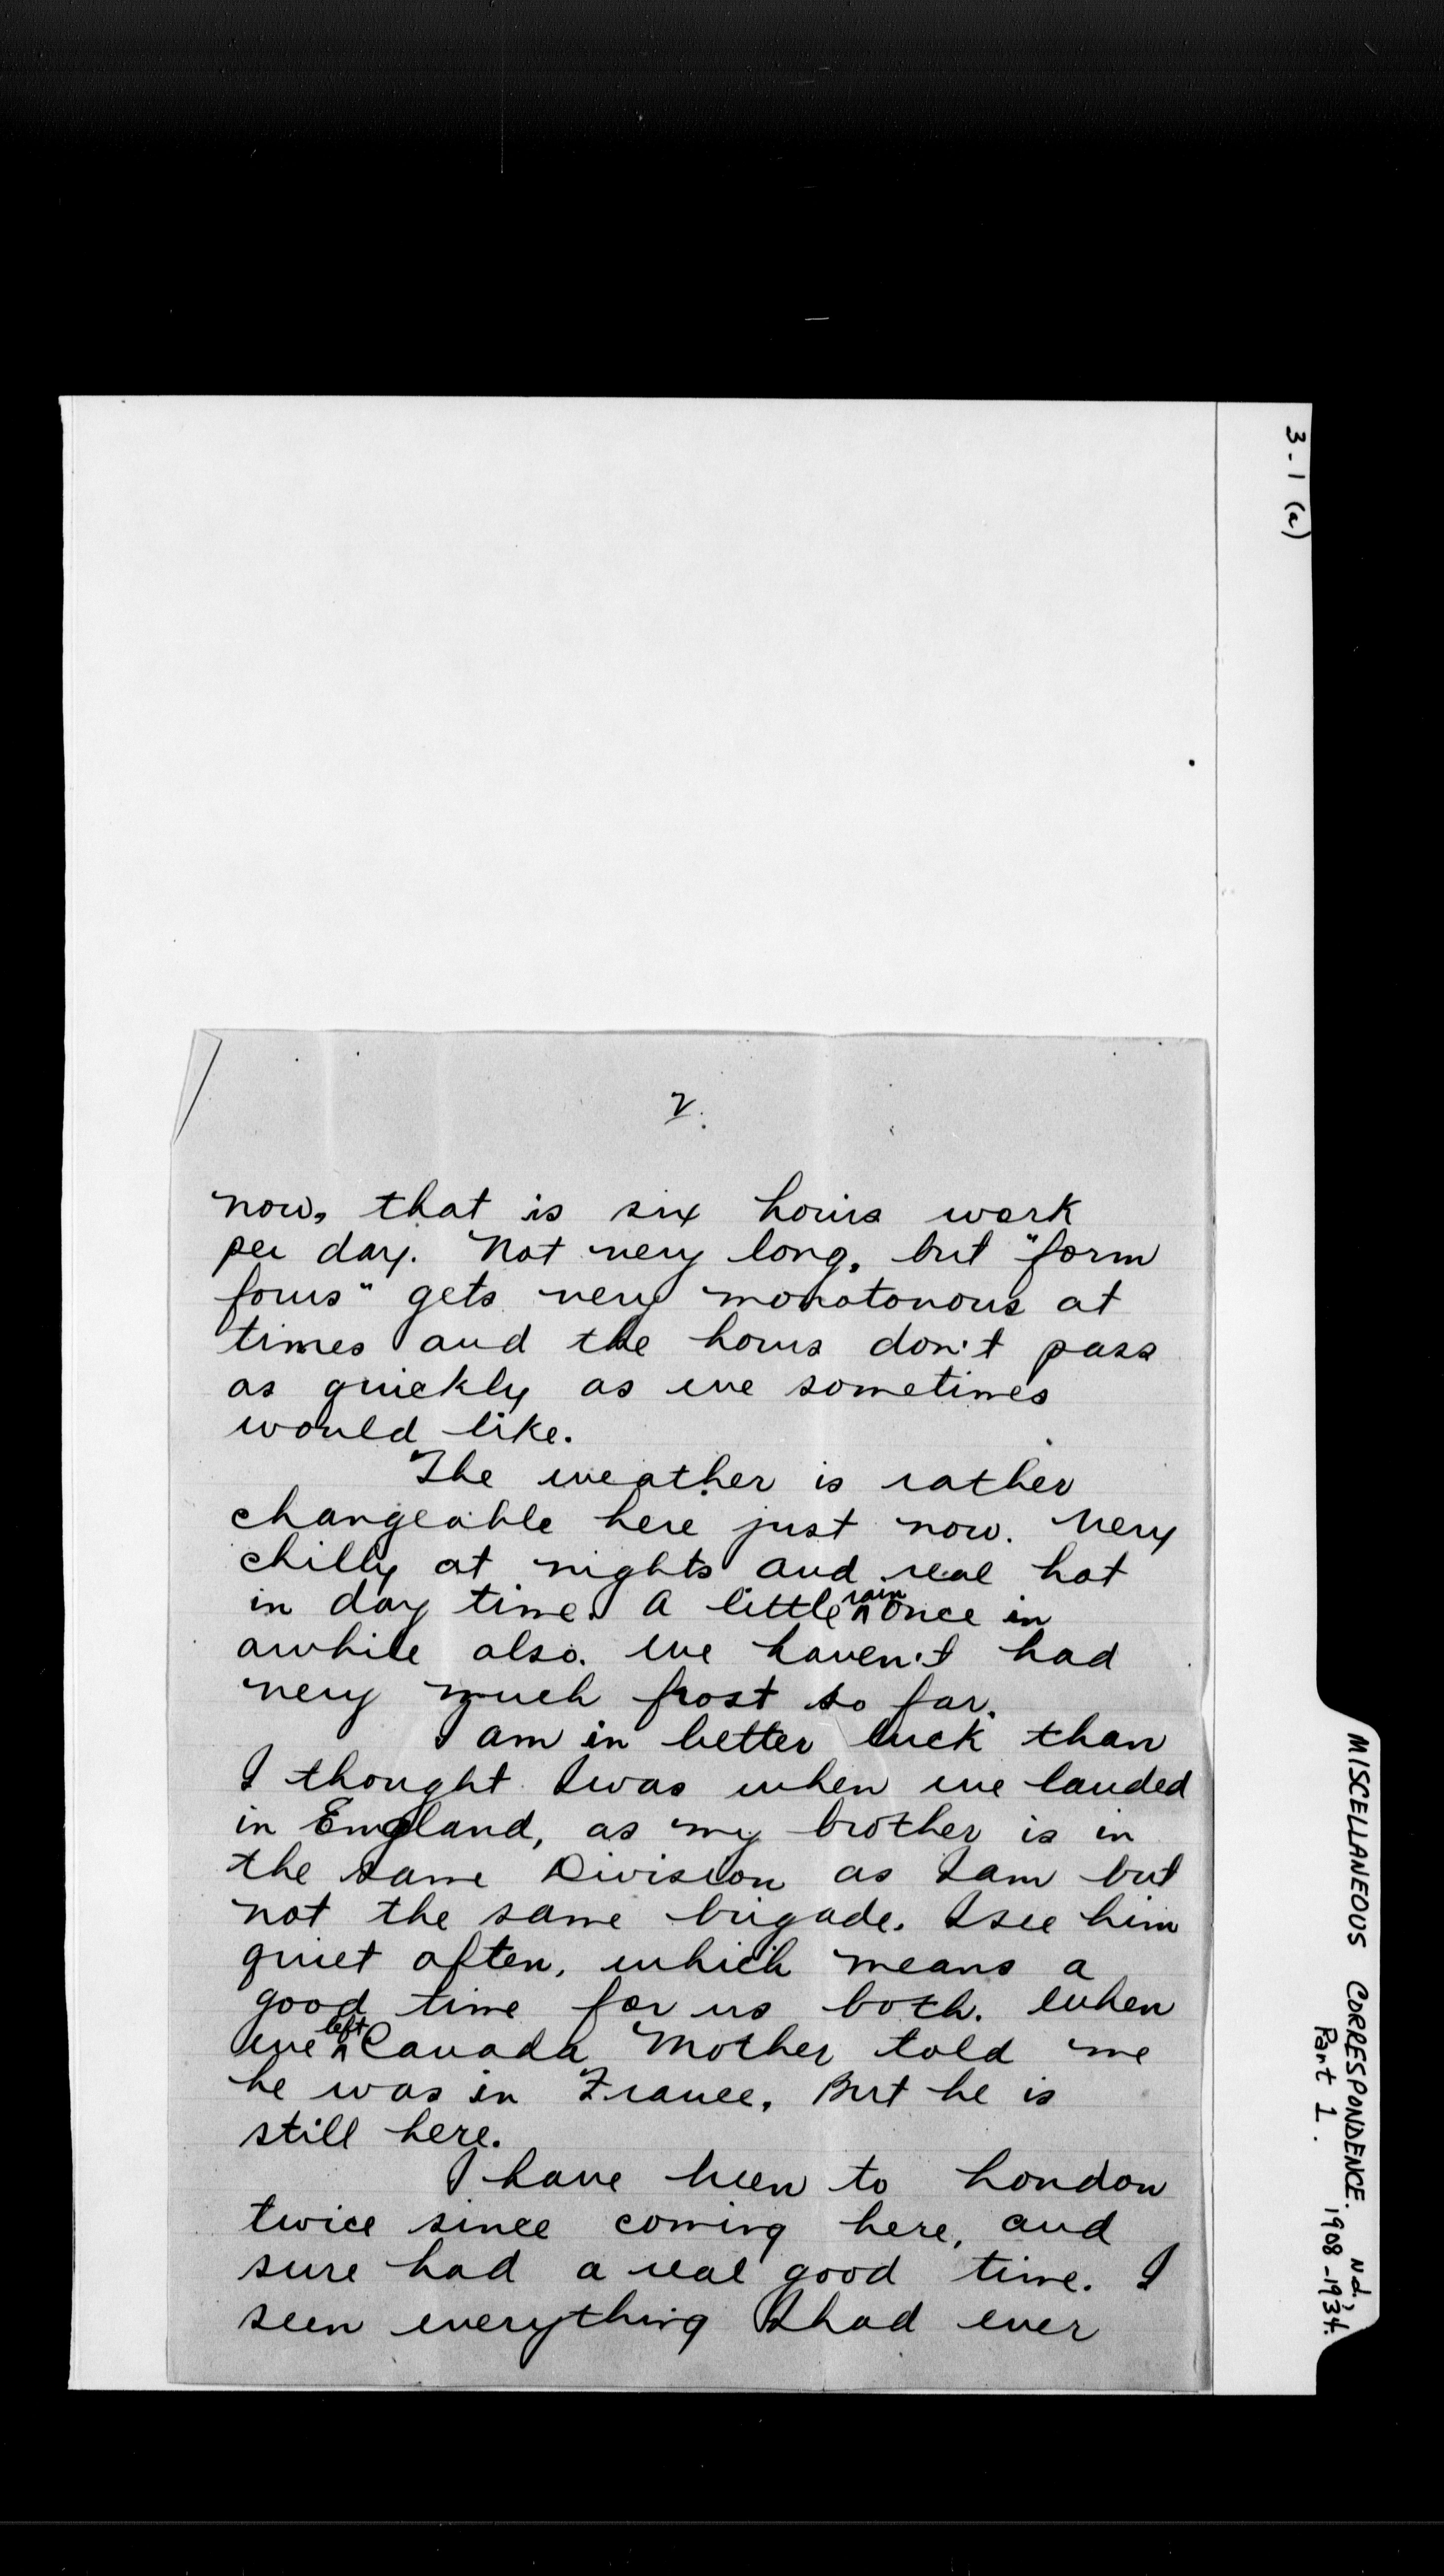 3-1 (a)
MISCELLANEOUS CORRESPONDENCE. n.d.,
Part 1. 1908-1934.
2.
now, that is six hours work
per day. Not very long, but "form
fours" gets very monotonous at
times and the hours don't pass
as quickly as we sometimes
would like.
The weather is rather
changeable here just now. Very
chilly at nights and real hot
in day time. A little rain once in
awhile also. We haven't had
very much frost so far.
I am in better luck than
I thought I was when we landed
in England, as my brother is in
the same Division as I am but
not the same brigade. I see him
quiet often, which means a
good time for us both. When
we left Canada Mother told me
he was in France, But he is
still here.
I have been to London
twice since coming here, and
sure had a real good time. I
seen everything I had ever